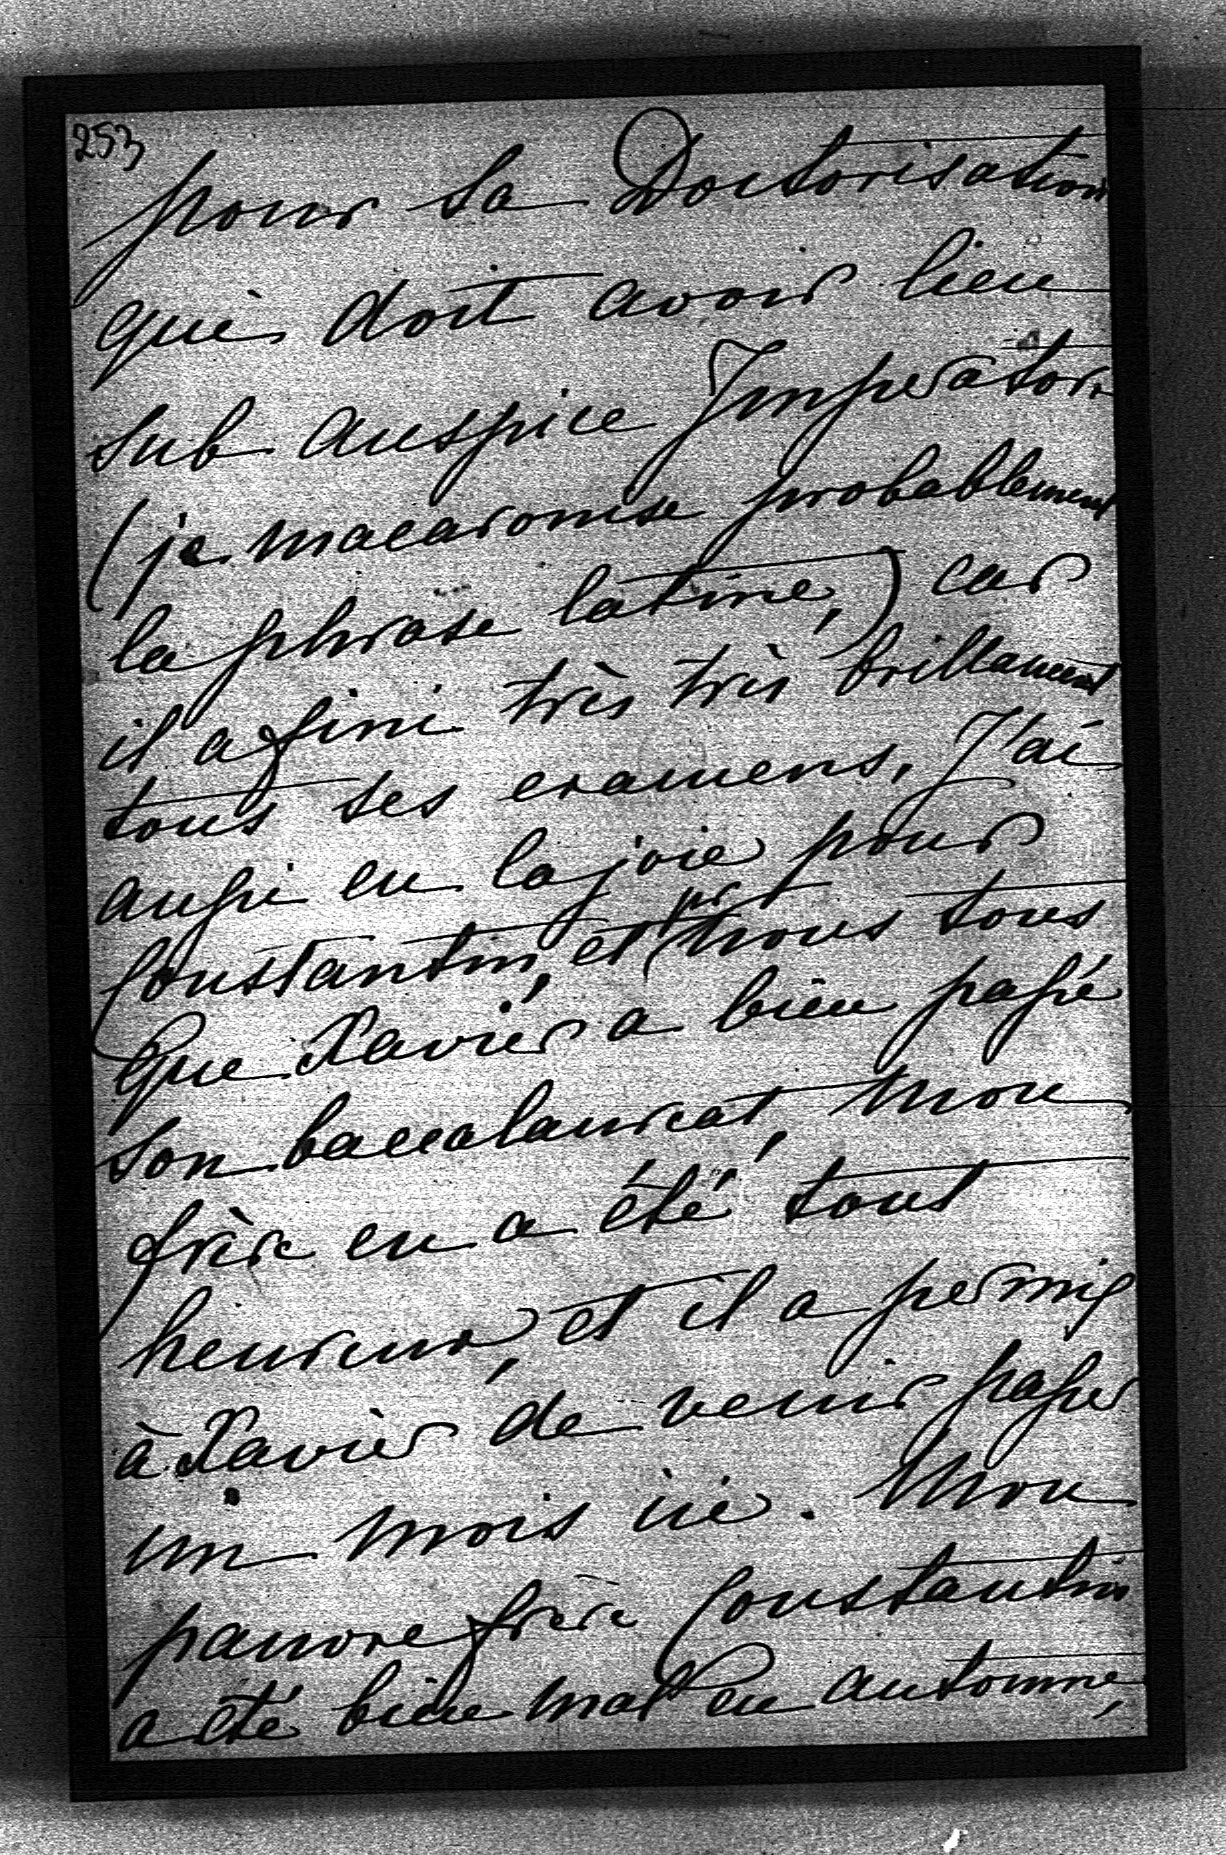 253
pour sa Doctorisation
qui doit avoir lieu
sub auspice Imperatore
(je macaronise probablement
la phrase latine,) car
il a fini très très brillament
tous ses examens. J'ai
aussi eu la joie pour
Constantin, et pr nous tous
que Xavier a bien passé
son baccalaureat, mon
frère en a été tout
heureux, et il a permis
à Xavier de venir passer
un mois ici. Mon
pauvre frère Constantin
a été bien mal en automne,